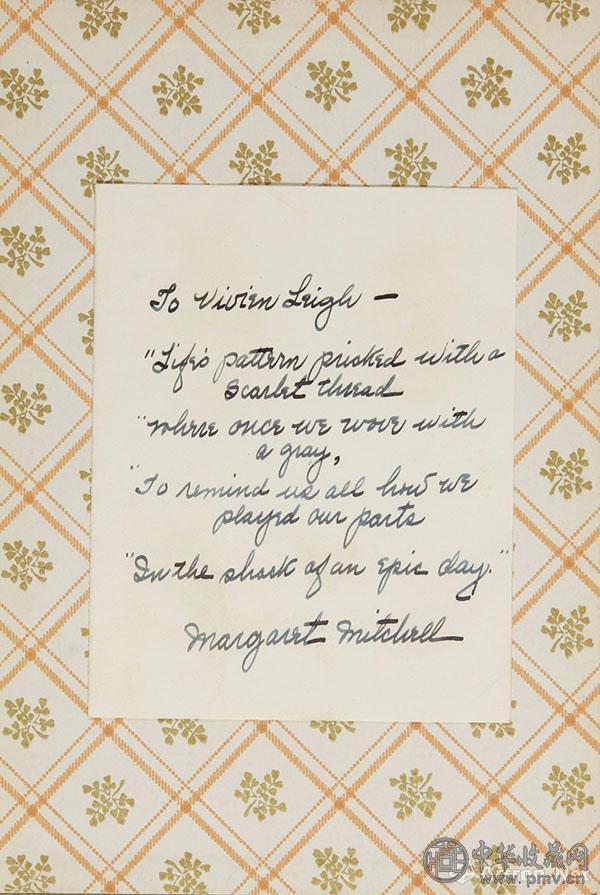 To Vivien Leigh —
"Life's pattern pricked with a
Scarlet thread
"where once we wove with
a gray,
"To remind us all how we
played our parts
"In the shock of an epic day."
Margaret Mitchell
中华收藏网
www.pmv.cn